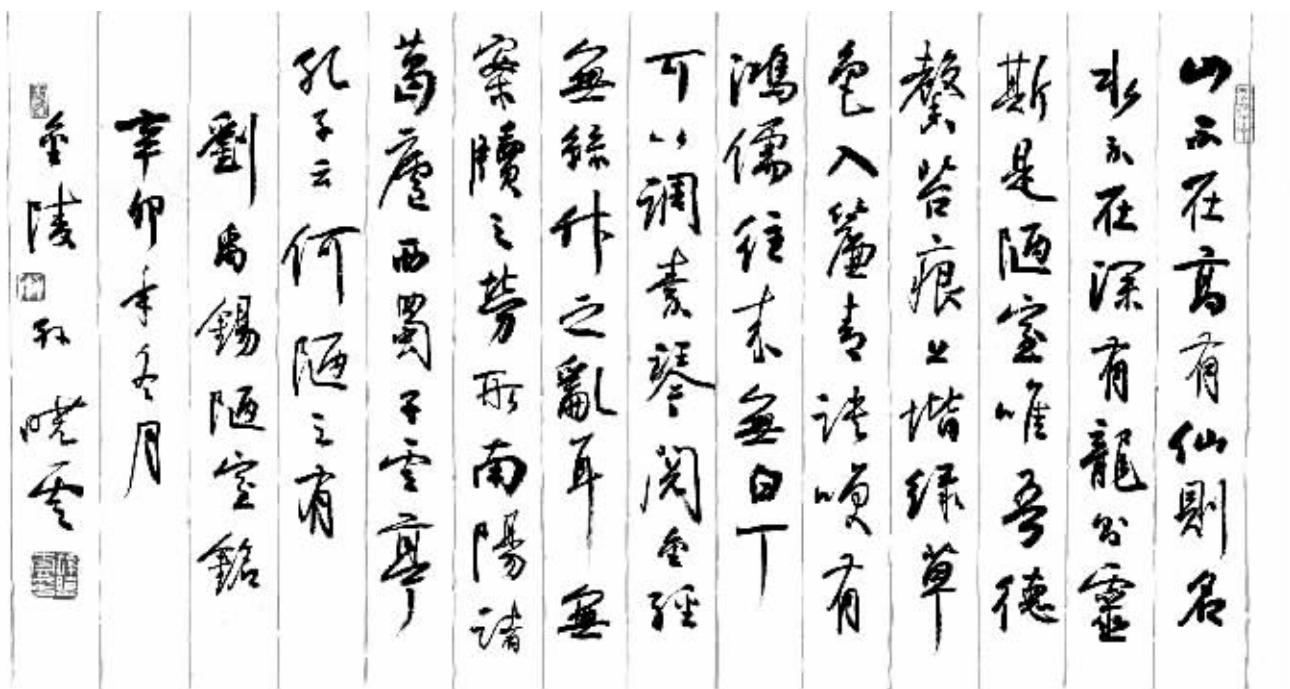 山不在高有仙則名
水不在深有龍則靈
斯是陋室唯吾德
馨苔痕上堦綠草
色入簾青談咲有
鴻儒往來無白丁
可以調素琴閱金經
無絲竹之亂耳無
案牘之勞形南陽諸
葛廬西蜀子雲亭
孔子云何陋之有
劉禹錫陋室銘
辛卯年冬月
金陵孫曉雲